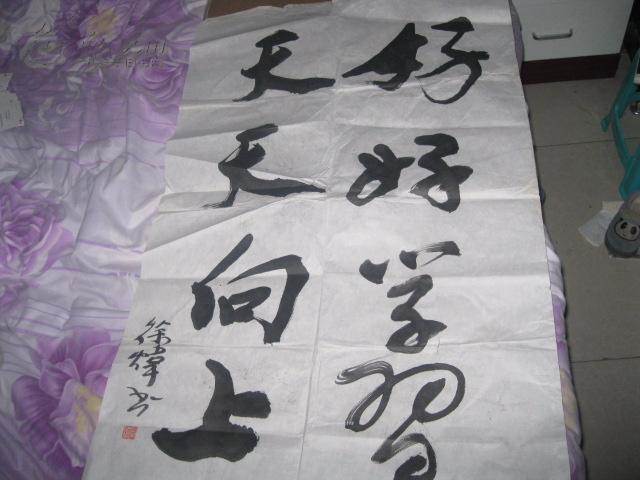 好好学習
天天向上
徐煒书